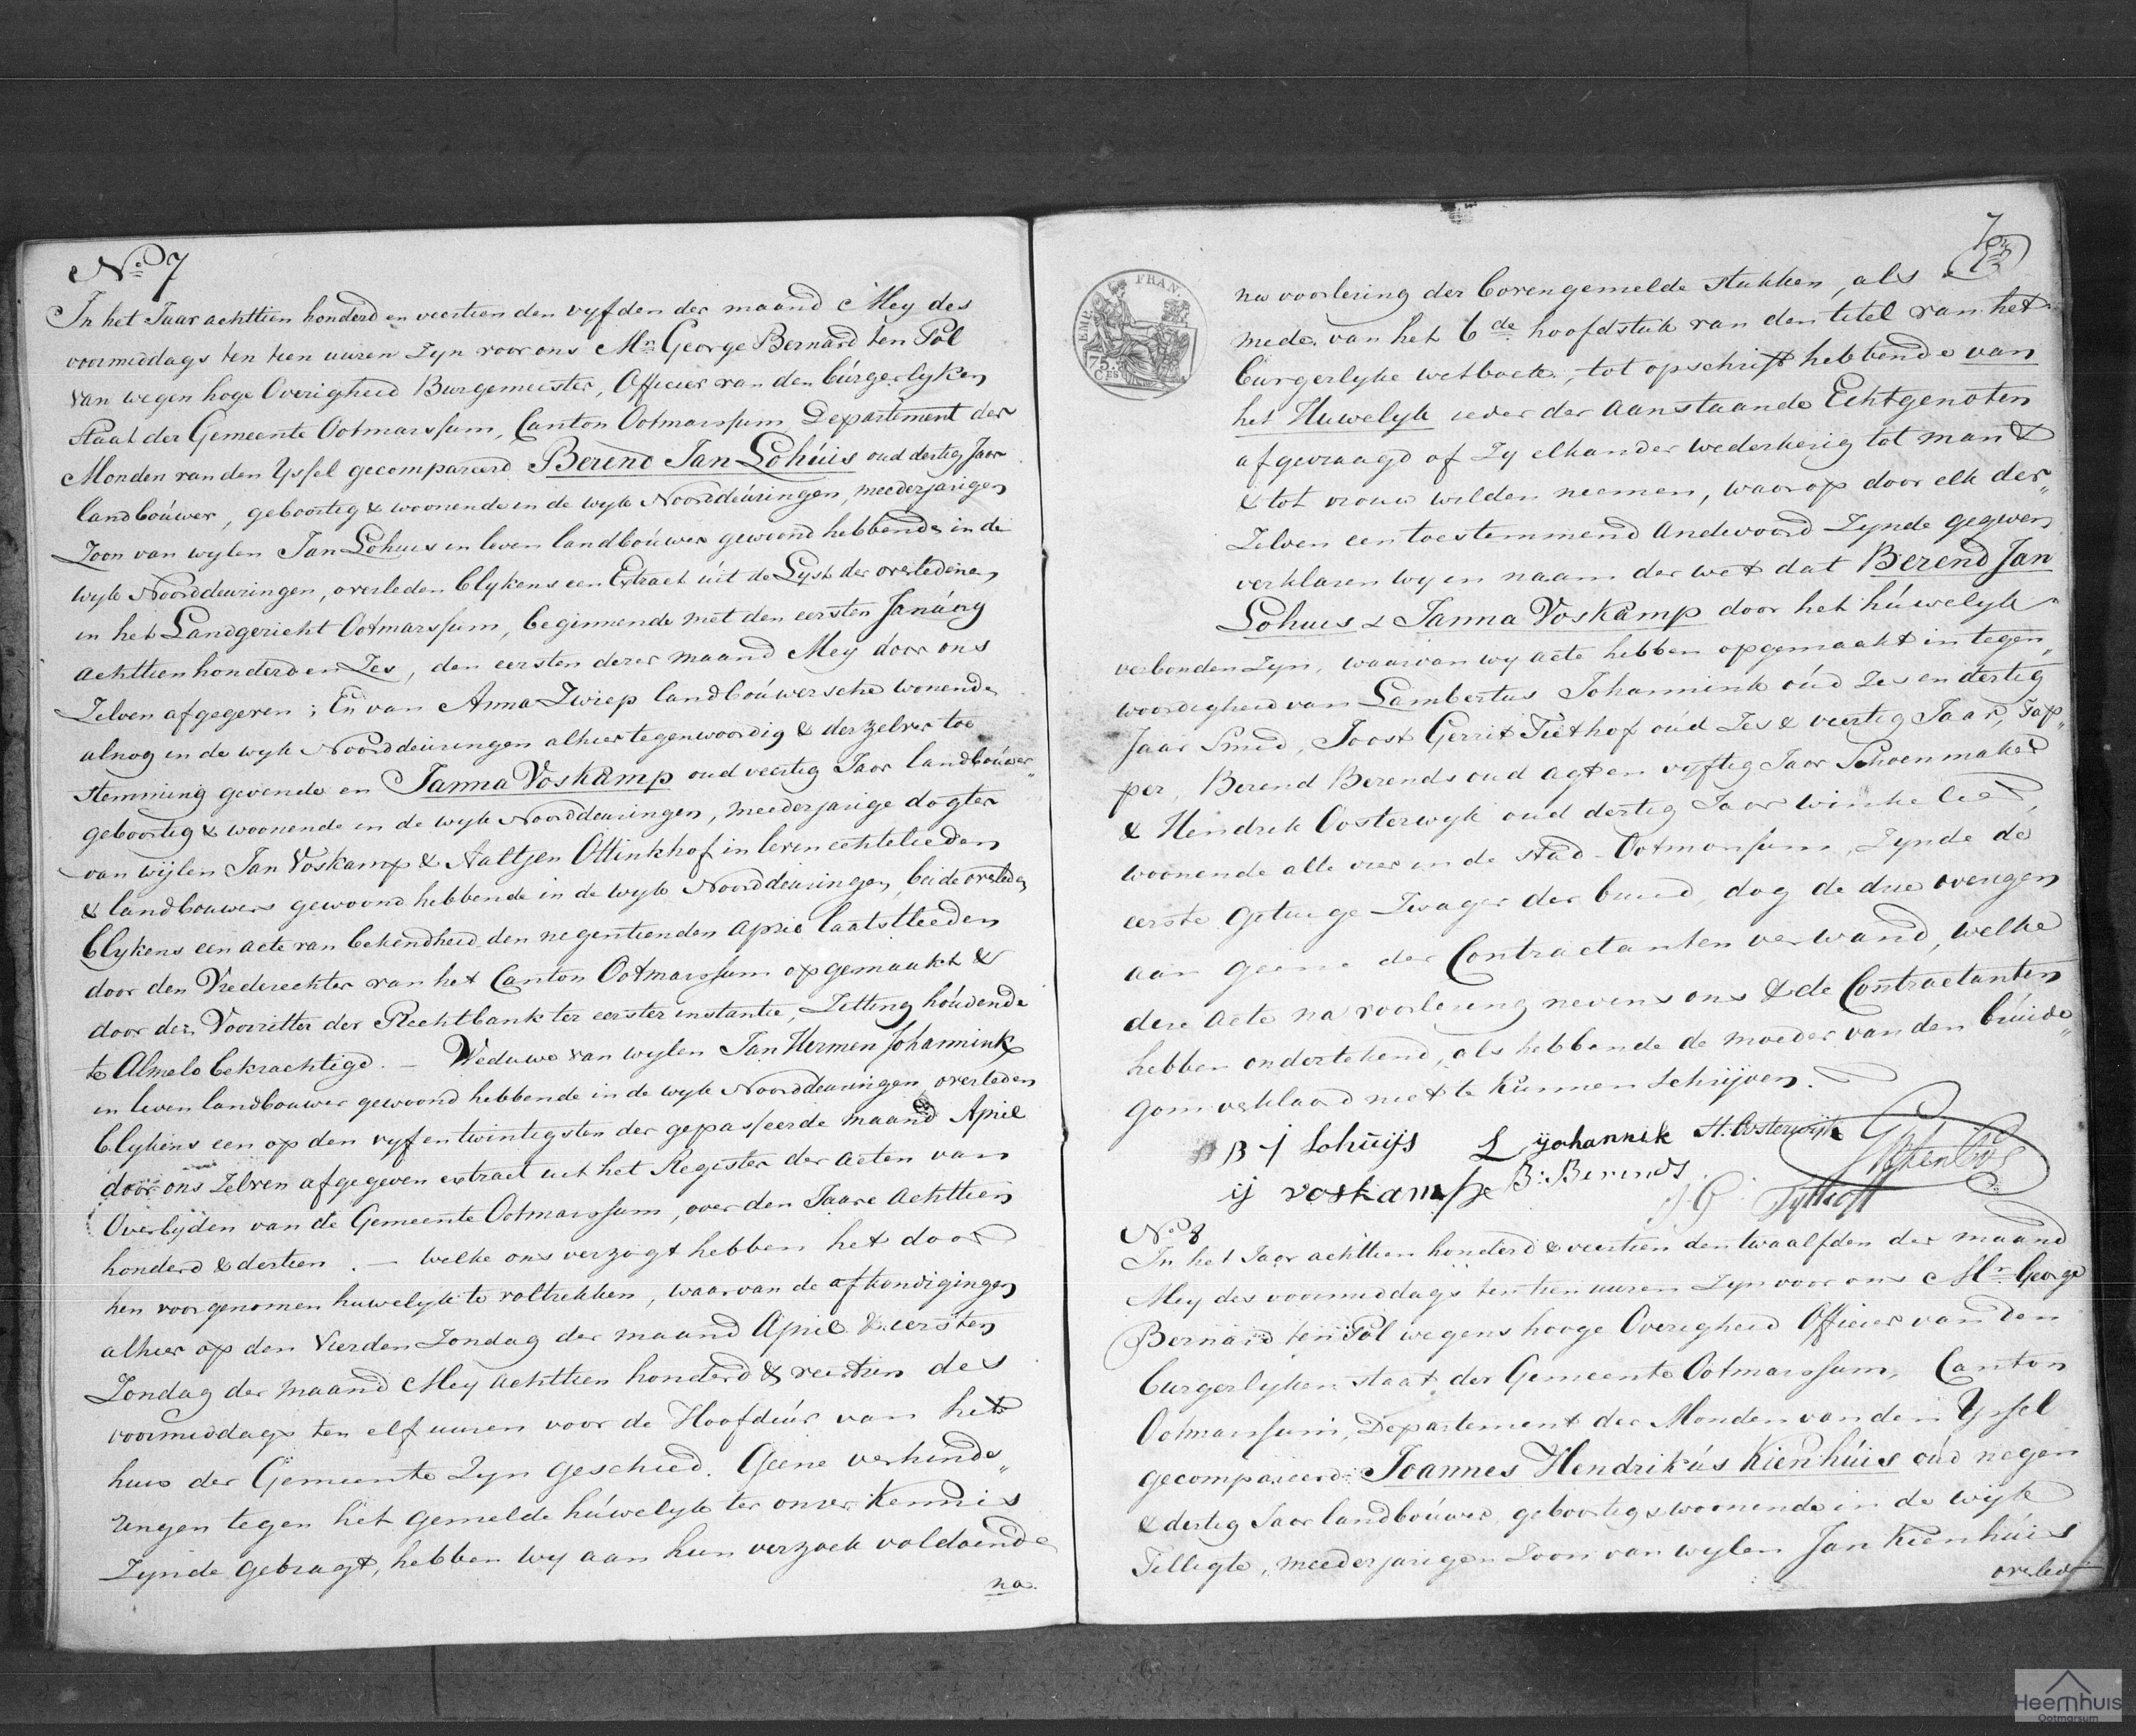 No 7
In het Jaar achttien honderd en veertien den vyfden der maand Mey des
voormiddags ten tien uuren Zyn voor ons Mr George Bernard ten Pol
van wegen hoge Overigheid Burgemeester, Officier van den bürgerlyken
Staat der Gemeente Ootmarssum, Canton Ootmarssum Departement der
Monden van den Yssel gecompareerd Berend Jan Lohúis oud dertig Jaar
landboúwer, geboortig & woonende in de wyk Noorddeúringen, meederjarigen
Zoon van wylen Jan Lohuis in leven landboúwer gewoond hebbende in de
wyk Noorddeuringen, overleden blykens een Extract uit de Lyst der overledenen
in het Landgericht Ootmarssum, beginnende met den eersten Janúary
achttien honderd en Zes, den eersten dezer maand Mey door ons
Zelven afgegeven; En van Anna Zwiep landboúwersche wonende
alnog in de wyk Noorddeuringen alhier tegenwoordig & derzelver toe
stemming gevende en Janna Voskamp oud veertig Jaar landboúwer„
geboortig & woonende in de wyk Noorddeuringen, meederjarige dogter
van wijlen Jan Voskamp & Aaltjen Ottinkhof in leven echtelieden
& landbouwers gewoond hebbende in de wyk Noorddeuringen, beide overleden
blykens een acte van bekendheid den negentienden April laatstleeden
door den Vrederechter van het Canton Ootmarssum opgemaakt &
door den Voorzitter der Rechtbank ter eerster instantie, Zitting hoúdende
te Almelo bekrachtigd. — Weduwe van wylen Jan Hermen Johannink
in leven landbouwer gewoond hebbende in de wyk Noorddeuringen overleden
blykens een op den vyf en twintigsten der gepasseerde maand April
door ons Zelven afgegeven extract uit het Register der acten van
Overlijden van de Gemeente Ootmarssum, over den Jaare achttien
honderd & dertien. — welke ons verzogt hebben het door
hen voorgenomen huwelyk te voltrekken, waarvan de afkondigingen
alhier op den Vierden Zondag der maand April & eersten
Zondag der maand Mey achttien honderd & veertien des
voormiddags ten elf uuren voor de Hoofdeúr van het
huis der Gemeente Zyn geschied. Geene verhinde„
ringen tegen het gemelde húwelyk ter onzer Kennis
Zynde gebragt, hebben wy aan hun verzoek voldoende
na
7
EMP. FRAN.
75 CES
na voorlezing der bovengemelde stukken, als
mede van het 6de hoofdstuk van den titel van het
burgerlyke wetboek, tot opschrift hebbende van
het Huwelyk ieder der aanstaande Echtgenoten
afgevraagd of Zy elkander wederkerig tot man &
& tot vrouw wilden neemen, waarop door elk der„
Zelven een toestemmend andwoord Zynde gegeven
verklaren wy in naam der wet dat Berend Jan
Lohuis & Janna Voskamp door het húwelyk
verbonden Zyn, waarvan wy acte hebben opgemaakt in tegen„
woordigheid van Lambertus Johannink oúd Zes en dertig
Jaar Smid, Joost Gerrit Tiethof oúd Zes & veertig Jaar, Tap„
per, Berend Berends oud agt en vyftig Jaar Schoenmaker
& Hendrik Oosterwyk oud dertig Jaar winkelier,
woonende alle vier in de stad Ootmarssum, Zynde de
eerste getuige Zwager der bruid, dog de drie overigen
aan geene der Contractanten verwand, welke
deze acte na voorlezing nevens ons & de Contractanten
hebben ondertekend, als hebbende de moeder van den brúide„
gom verklaard niet te kúnnen Schrijven.
B j Lohuijs L yohannik H. Oosterwijk
ij voskamp B: Berends
J G Tijthoff
No 8
In het Jaar achttien honderd & veertien den twaalfden der maand
Mey des voormiddags ten tien uuren Zyn voor ons Mr George
Bernard ten Pol wegens hooge Overigheid Officier van den
burgerlyken staat der Gemeente Ootmarssum, Canton
Ootmarssum, Departement der Monden van den Yssel
gecompareerd Joannes Hendrikús Kienhúis oúd negen
& dertig Jaar landboúwer, geboortig & woonende in de wijk
Tilligte, meederjarigen Zoon van wylen Jan Kienhúis
overled
Heemhuis
Ootmarsum